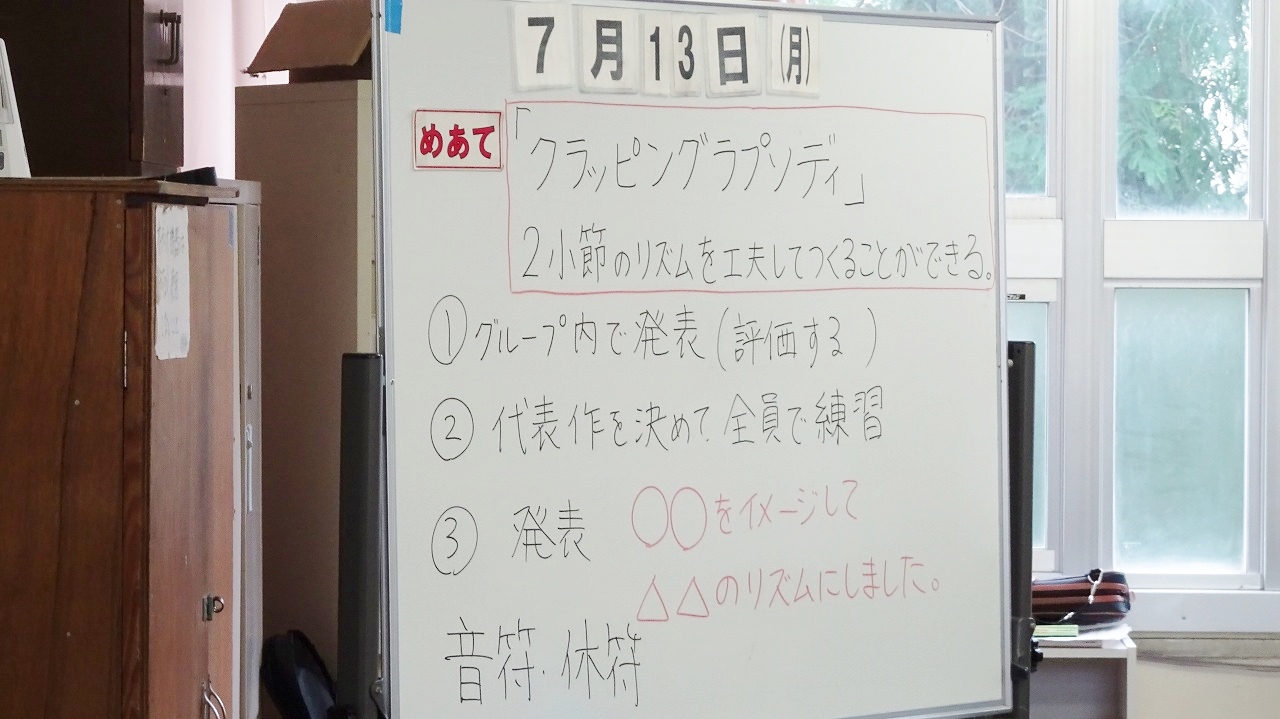 7月13日(月)
めあて
「クラッピングラプソディ」
2小節のリズムを工夫してつくることができる。
①グループ内で発表(評価する )
② 代表作を決めて 全員で練習
③ 発表 ○○をイメージして
△△のリズムにしました。
音符・休符